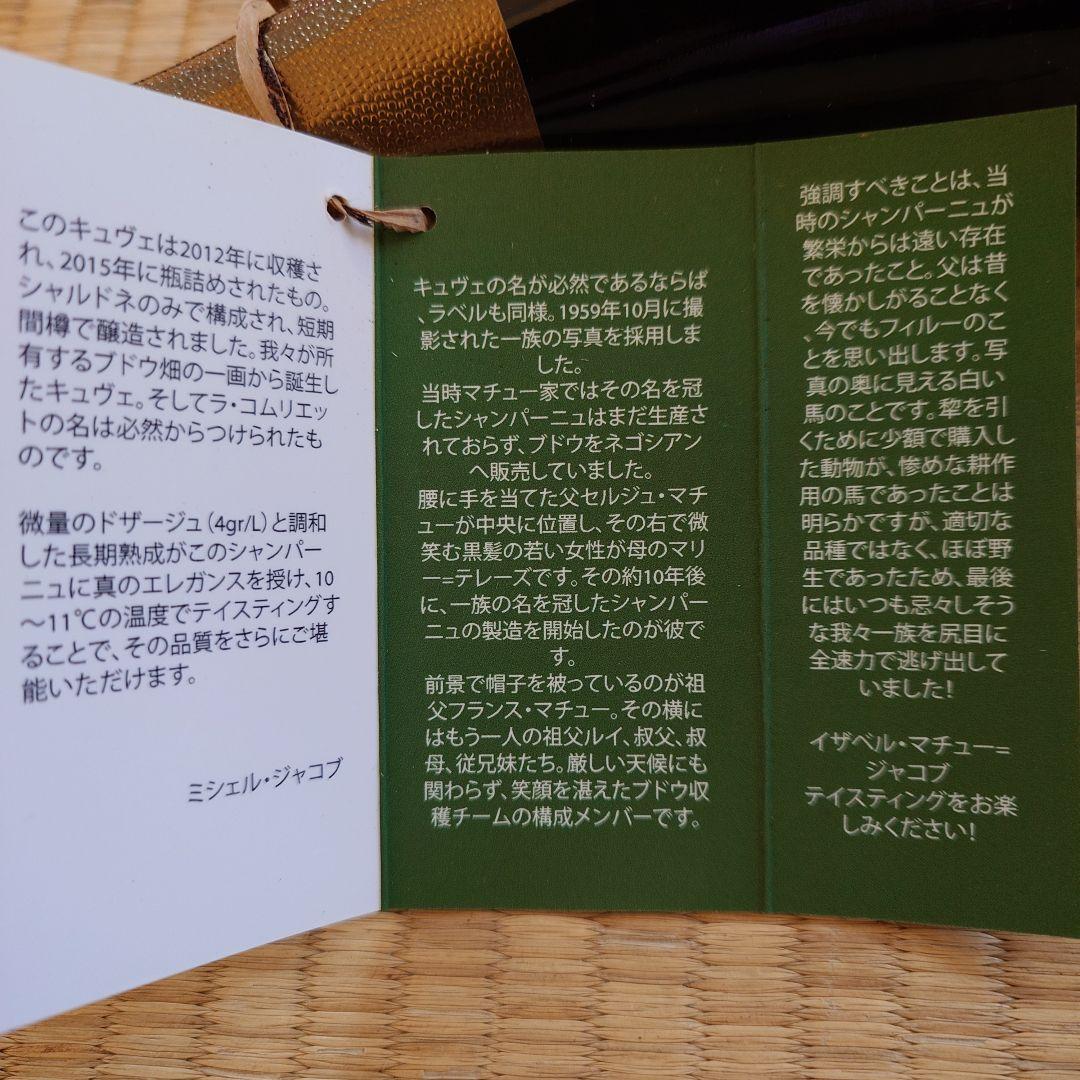 このキュヴェは2012年に収穫さ
れ、2015年に瓶詰めされたもの。
シャルドネのみで構成され、短期
間樽で醸造されました。我々が所
有するブドウ畑の一画から誕生し
たキュヴェ。そしてラ・コムリエッ
トの名は必然からつけられたも
のです。
微量のドザージュ（4gr/L）と調和
した長期熟成がこのシャンパー
ニュに真のエレガンスを授け、10
～11℃の温度でテイスティングす
ることで、その品質をさらにご堪
能いただけます。
ミシェル・ジャコブ
キュヴェの名が必然であるならば
、ラベルも同様。1959年10月に撮
影された一族の写真を採用しま
した。
当時マチュー家ではその名を冠
したシャンパーニュはまだ生産さ
れておらず、ブドウをネゴシアン
へ販売していました。
腰に手を当てた父セルジュ・マチ
ューが中央に位置し、その右で微
笑む黒髪の若い女性が母のマリ
ー=テレーズです。その約10年後
に、一族の名を冠したシャンパー
ニュの製造を開始したのが彼で
す。
前景で帽子を被っているのが祖
父フランス・マチュー。その横に
はもう一人の祖父ルイ、叔父、叔
母、従兄妹たち。厳しい天候にも
関わらず、笑顔を湛えたブドウ収
穫チームの構成メンバーです。
強調すべきことは、当
時のシャンパーニュが
繁栄からは遠い存在
であったこと。父は昔
を懐かしがることなく
、今でもフィルーのこ
とを思い出します。写
真の奥に見える白い
馬のことです。犂を引
くために少額で購入し
た動物が、惨めな耕作
用の馬であったことは
明らかですが、適切な
品種ではなく、ほぼ野
生であったため、最後
にはいつも忌々しそう
な我々一族を尻目に
全速力で逃げ出して
いました！
イザベル・マチュー=
ジャコブ
テイスティングをお楽
しみください！